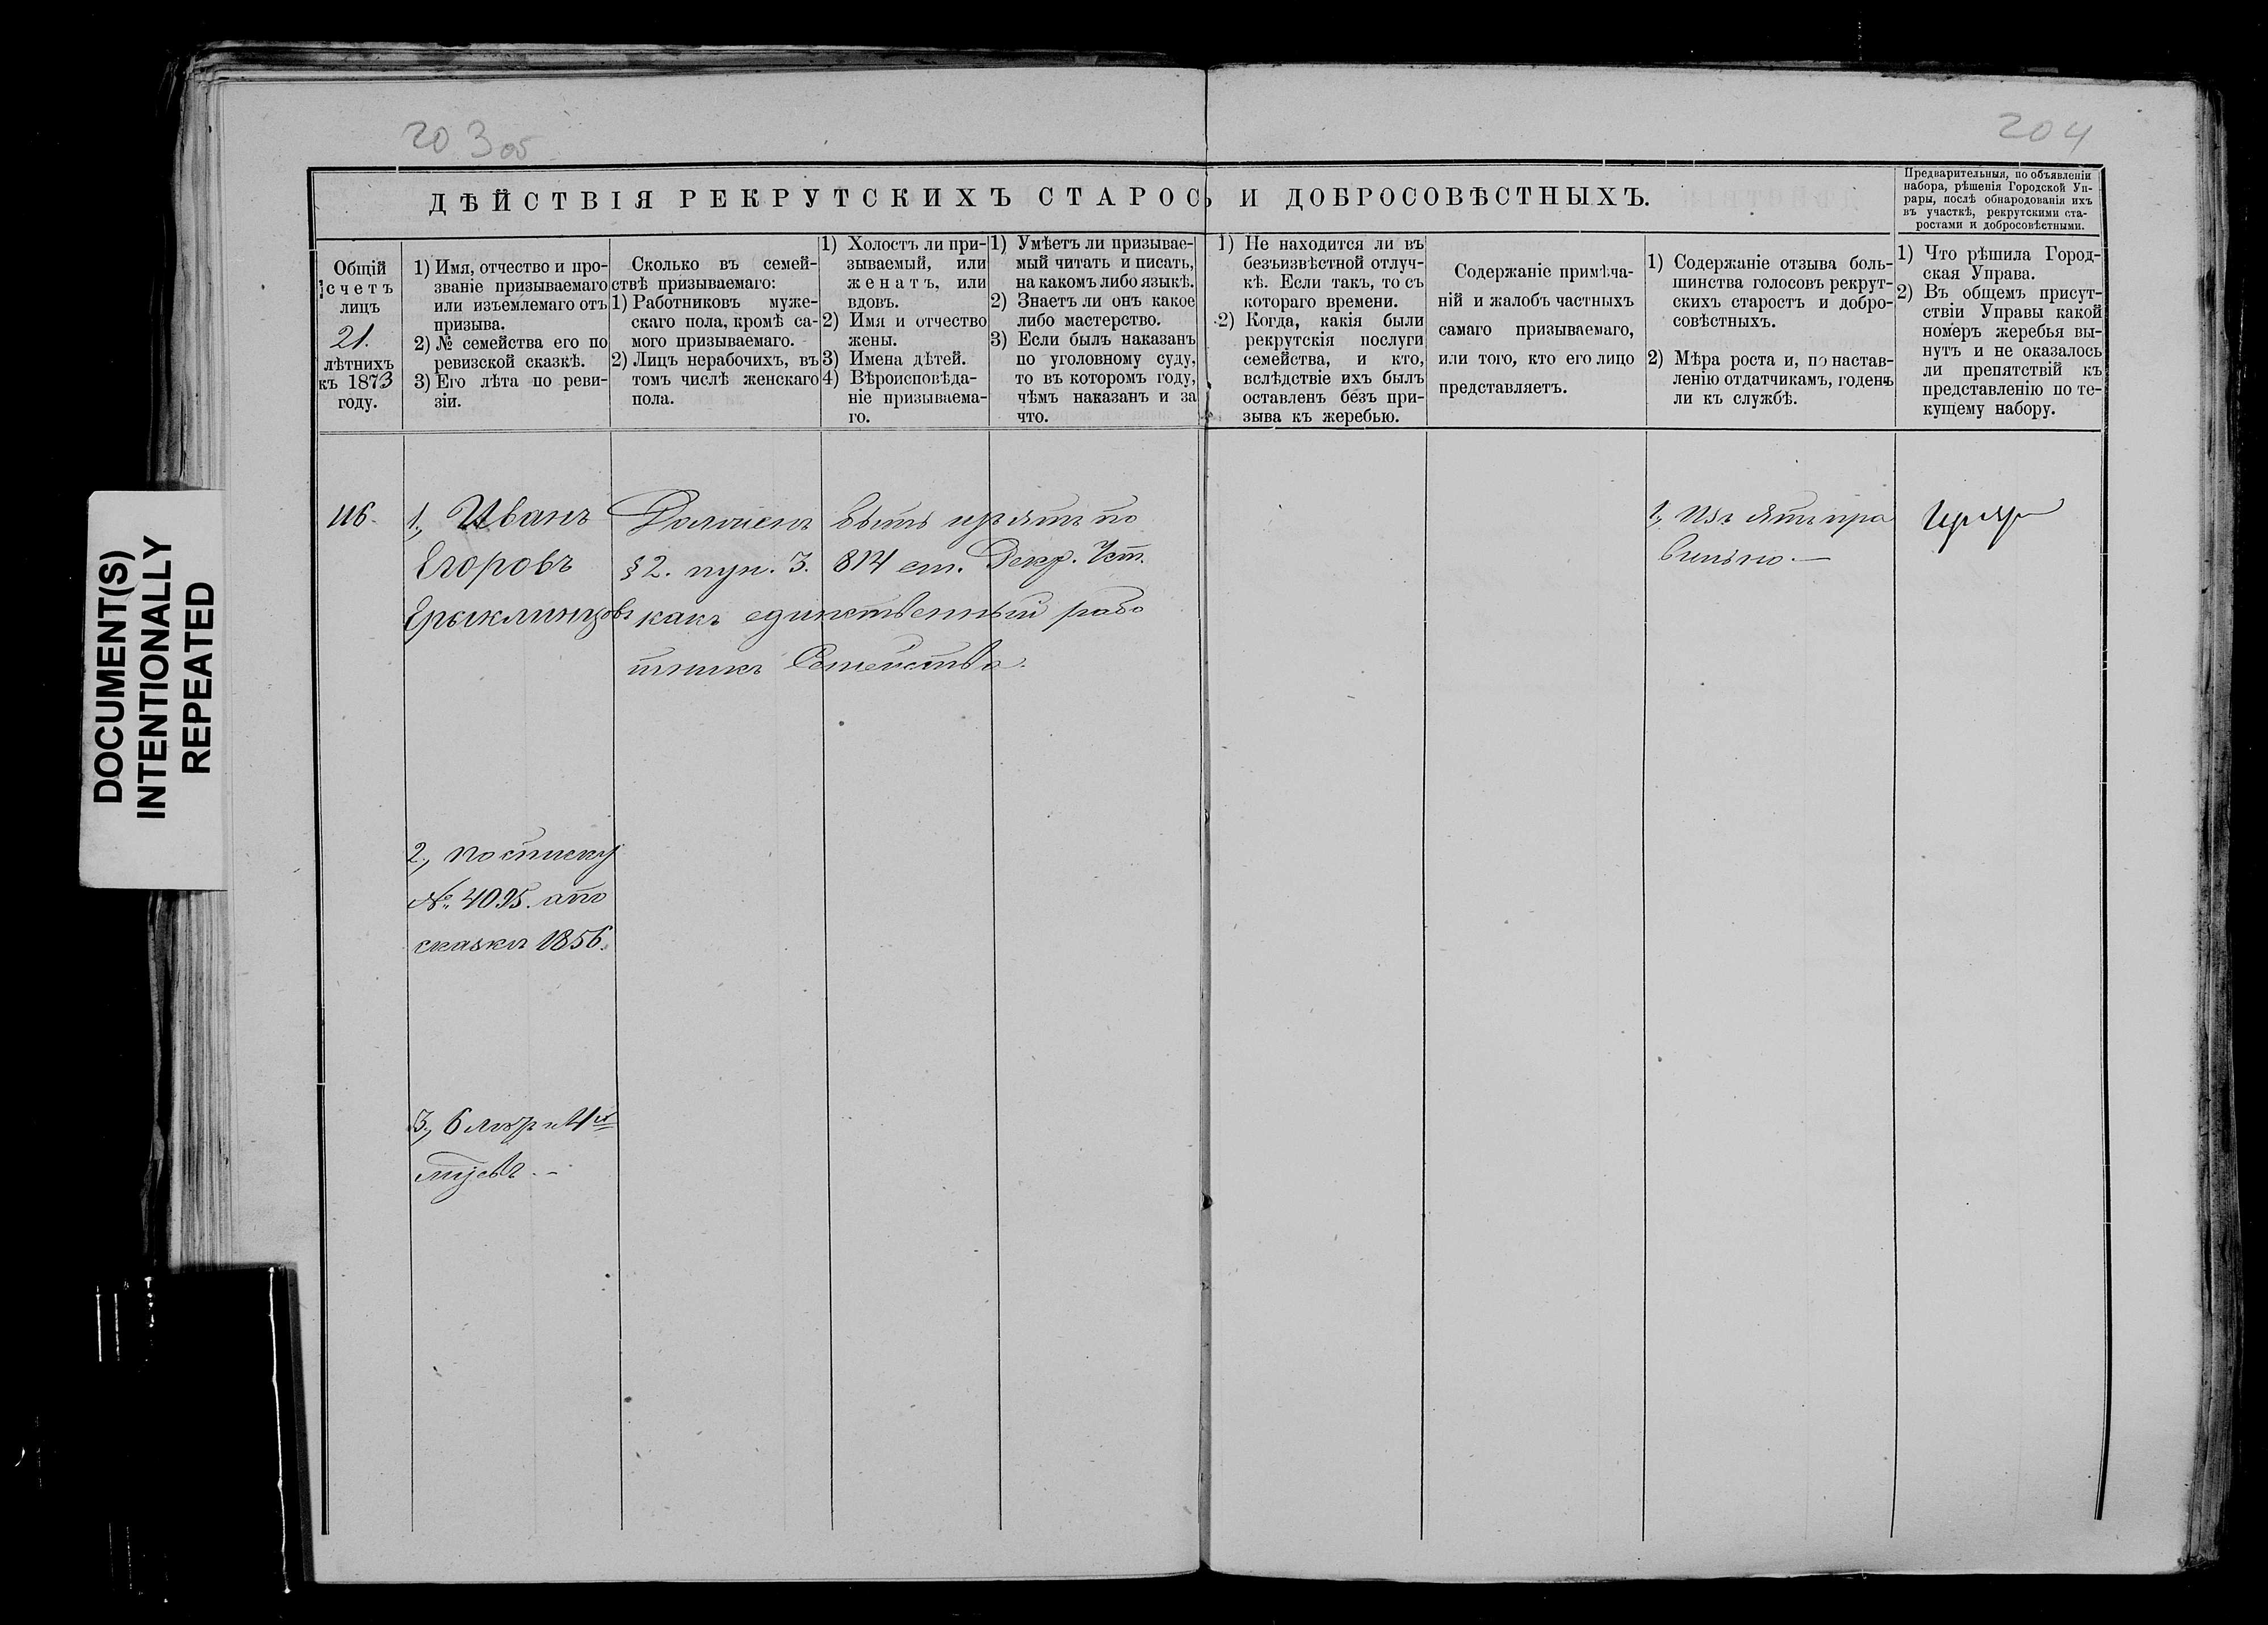 203 об
204
ДѢЙСТВІЯ РЕКРУТСКИХЪ СТАРОС И ДОБРОСОВѢСТНЫХЪ.
Предварительныя, по объявленіи
набора, рѣшенія Городской Уп-
равы, послѣ обнародованія ихъ
въ участкѣ, рекрутскими ста-
ростами и добросовѣстными.
Общій
счетъ
лицъ
21.
лѣтнихъ
къ 1873
году.
1) Имя, отчество и про-
званіе призываемаго
или изъемлемаго отъ
призыва.
2) № семейства его по
ревизской сказкѣ.
3) Его лѣта по реви-
зіи.
Сколько въ семей-
ствѣ призываемаго:
1) Работниковъ муже-
скаго пола, кромѣ са-
мого призываемаго.
2) Лицъ нерабочихъ, въ
томъ числѣ женскаго
пола.
1) Холостъ ли при-
зываемый, или
женатъ, или
вдовъ.
2) Имя и отчество
жены.
3) Имена дѣтей.
4) Вѣроисповѣда-
ніе призываема-
го.
1) Умѣетъ ли призывае-
мый читать и писать,
на какомъ либо языкѣ.
2) Знаетъ ли онъ какое
либо мастерство.
3) Если былъ наказанъ
по уголовному суду,
то въ которомъ году,
чѣмъ наказанъ и за
что.
1) Не находится ли въ
безъизвѣстной отлуч-
кѣ. Если такъ, то съ
котораго времени.
2) Когда, какія были
рекрутскія послуги
семейства, и кто,
вслѣдствіе ихъ былъ
оставленъ безъ при-
зыва къ жеребью.
Содержаніе примѣча-
ній и жалобъ частныхъ
самаго призываемаго,
или того, кто его лицо
представляетъ.
1) Содержаніе отзыва боль-
шинства голосовъ рекрут-
скихъ старостъ и добро-
совѣстныхъ.
2) Мѣра роста и, по настав-
ленію отдатчикамъ, годенъ
ли къ службѣ.
1) Что рѣшила Город-
ская Управа.
2) Въ общемъ присут-
ствіи Управы какой
номеръ жеребья вы-
нутъ и не оказалось
ли препятствій къ
представленію по те-
кущему набору.
116.
1, Иванъ
Егоровъ
Ерыклинцовъ
Долженъ быть изъятъ по
§ 2. пун. 3. 814 ст. Рекр. Уст.
какъ единственный рабо
тникъ Семейства.
1, Изъятъ пра
вильно.—
2, по списку
№ 4095. ато
сказки 1856.
3, 6 лѣтъ и 4х
DOCUMENT(S)
INTENTIONALLY
REPEATED